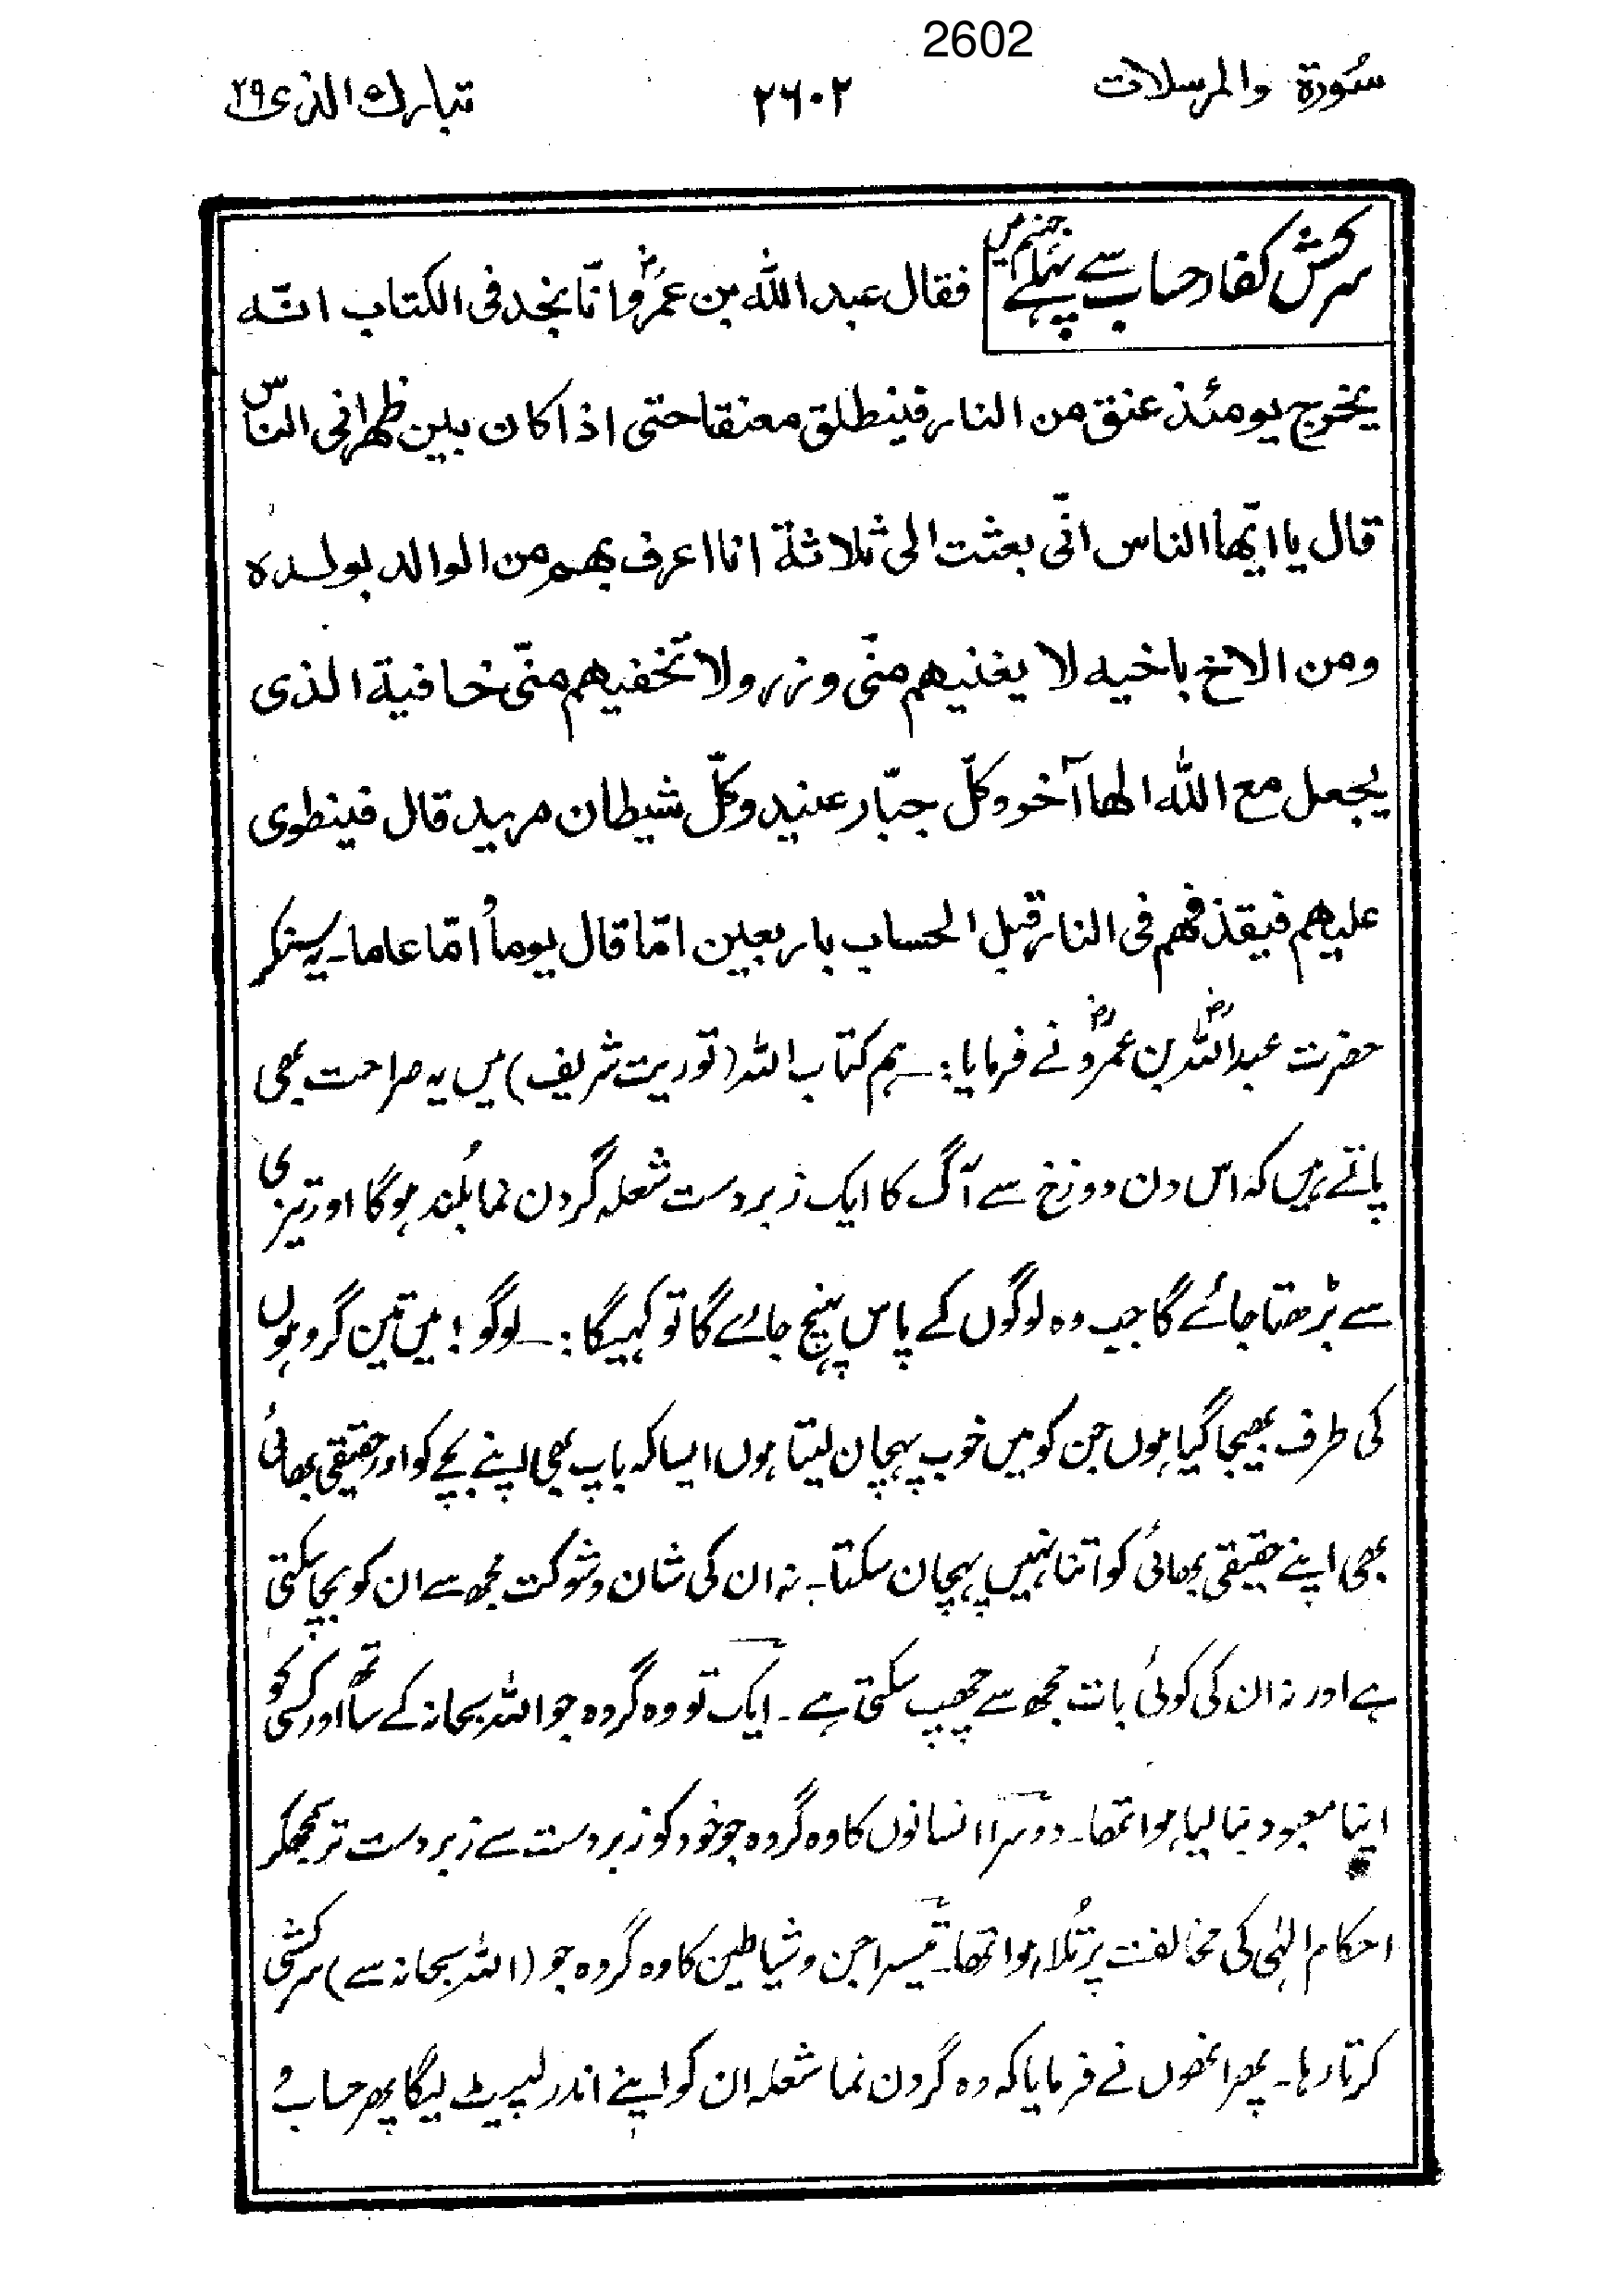 2602
سُورة والمرسلات ۲۶۰۲ تبارك الذى ۲۹
سرکش کفار حساب سے پہلے جہنم میں فقال عبد الله بن عمروؓ انّا نجد فى الكتاب انّه
يخرج يومئذ عنق من النار فينطلق معنقا حتى اذا كان بين ظهرانى الناس
قال يا ايّها الناس انّى بعثت الى ثلاثة انا اعرف بهم من الوالد بولده
ومن الاخ باخيه لا يغنيهم منّى وزر ولا تخفيهم منّى خافية الذى
يجعل مع الله الها آخر وكلّ جبّار عنيد وكلّ شيطان مريد قال فينطوى
عليهم فيقذفهم فى النار قبل الحساب باربعين امّا قال يوماً وامّا عاما۔ یہ سنکر
حضرت عبداللہؓ بن عمروؓ نے فرمایا:۔ ہم کتاب اللہ (توریت شریف) میں یہ صراحت بھی
پاتے ہیں کہ اس دن دوزخ سے آگ کا ایک زبردست شعلہ گردن نما بُلند ہوگا اور تیزی
سے بڑھتا جائے گا جب وہ لوگوں کے پاس پہنچ جائے گا تو کہیگا:۔ لوگو! میں تین گروہوں
کی طرف بھیجا گیا ہوں جن کو میں خوب پہچان لیتا ہوں ایسا کہ باپ بھی اپنے بچے کو اور حقیقی بھائی
بھی اپنے حقیقی بھائی کو اتنا نہیں پہچان سکتا۔ نہ ان کی شان و شوکت مجھ سے ان کو بچا سکتی
ہے اور نہ ان کی کوئی بات مجھ سے چھپ سکتی ہے۔ ایک تو وہ گروہ جو اللہ سبحانہ کے ساتھ اور کسی کو
اپنا معبود بنا لیا ہوا تھا۔ دوسرا انسانوں کا وہ گروہ جو خود کو زبردست سے زبردست تر سمجھکر
احکام الٰہی کی مخالفت پر تُلا ہوا تھا۔ تیسرا جن و شیاطین کا وہ گروہ جو (اللہ سبحانہ سے) سرکشی
کرتا رہا۔ پھر انھوں نے فرمایا کہ وہ گردن نما شعلہ ان کو اپنے اندر لپیٹ لیگا پھر حساب و